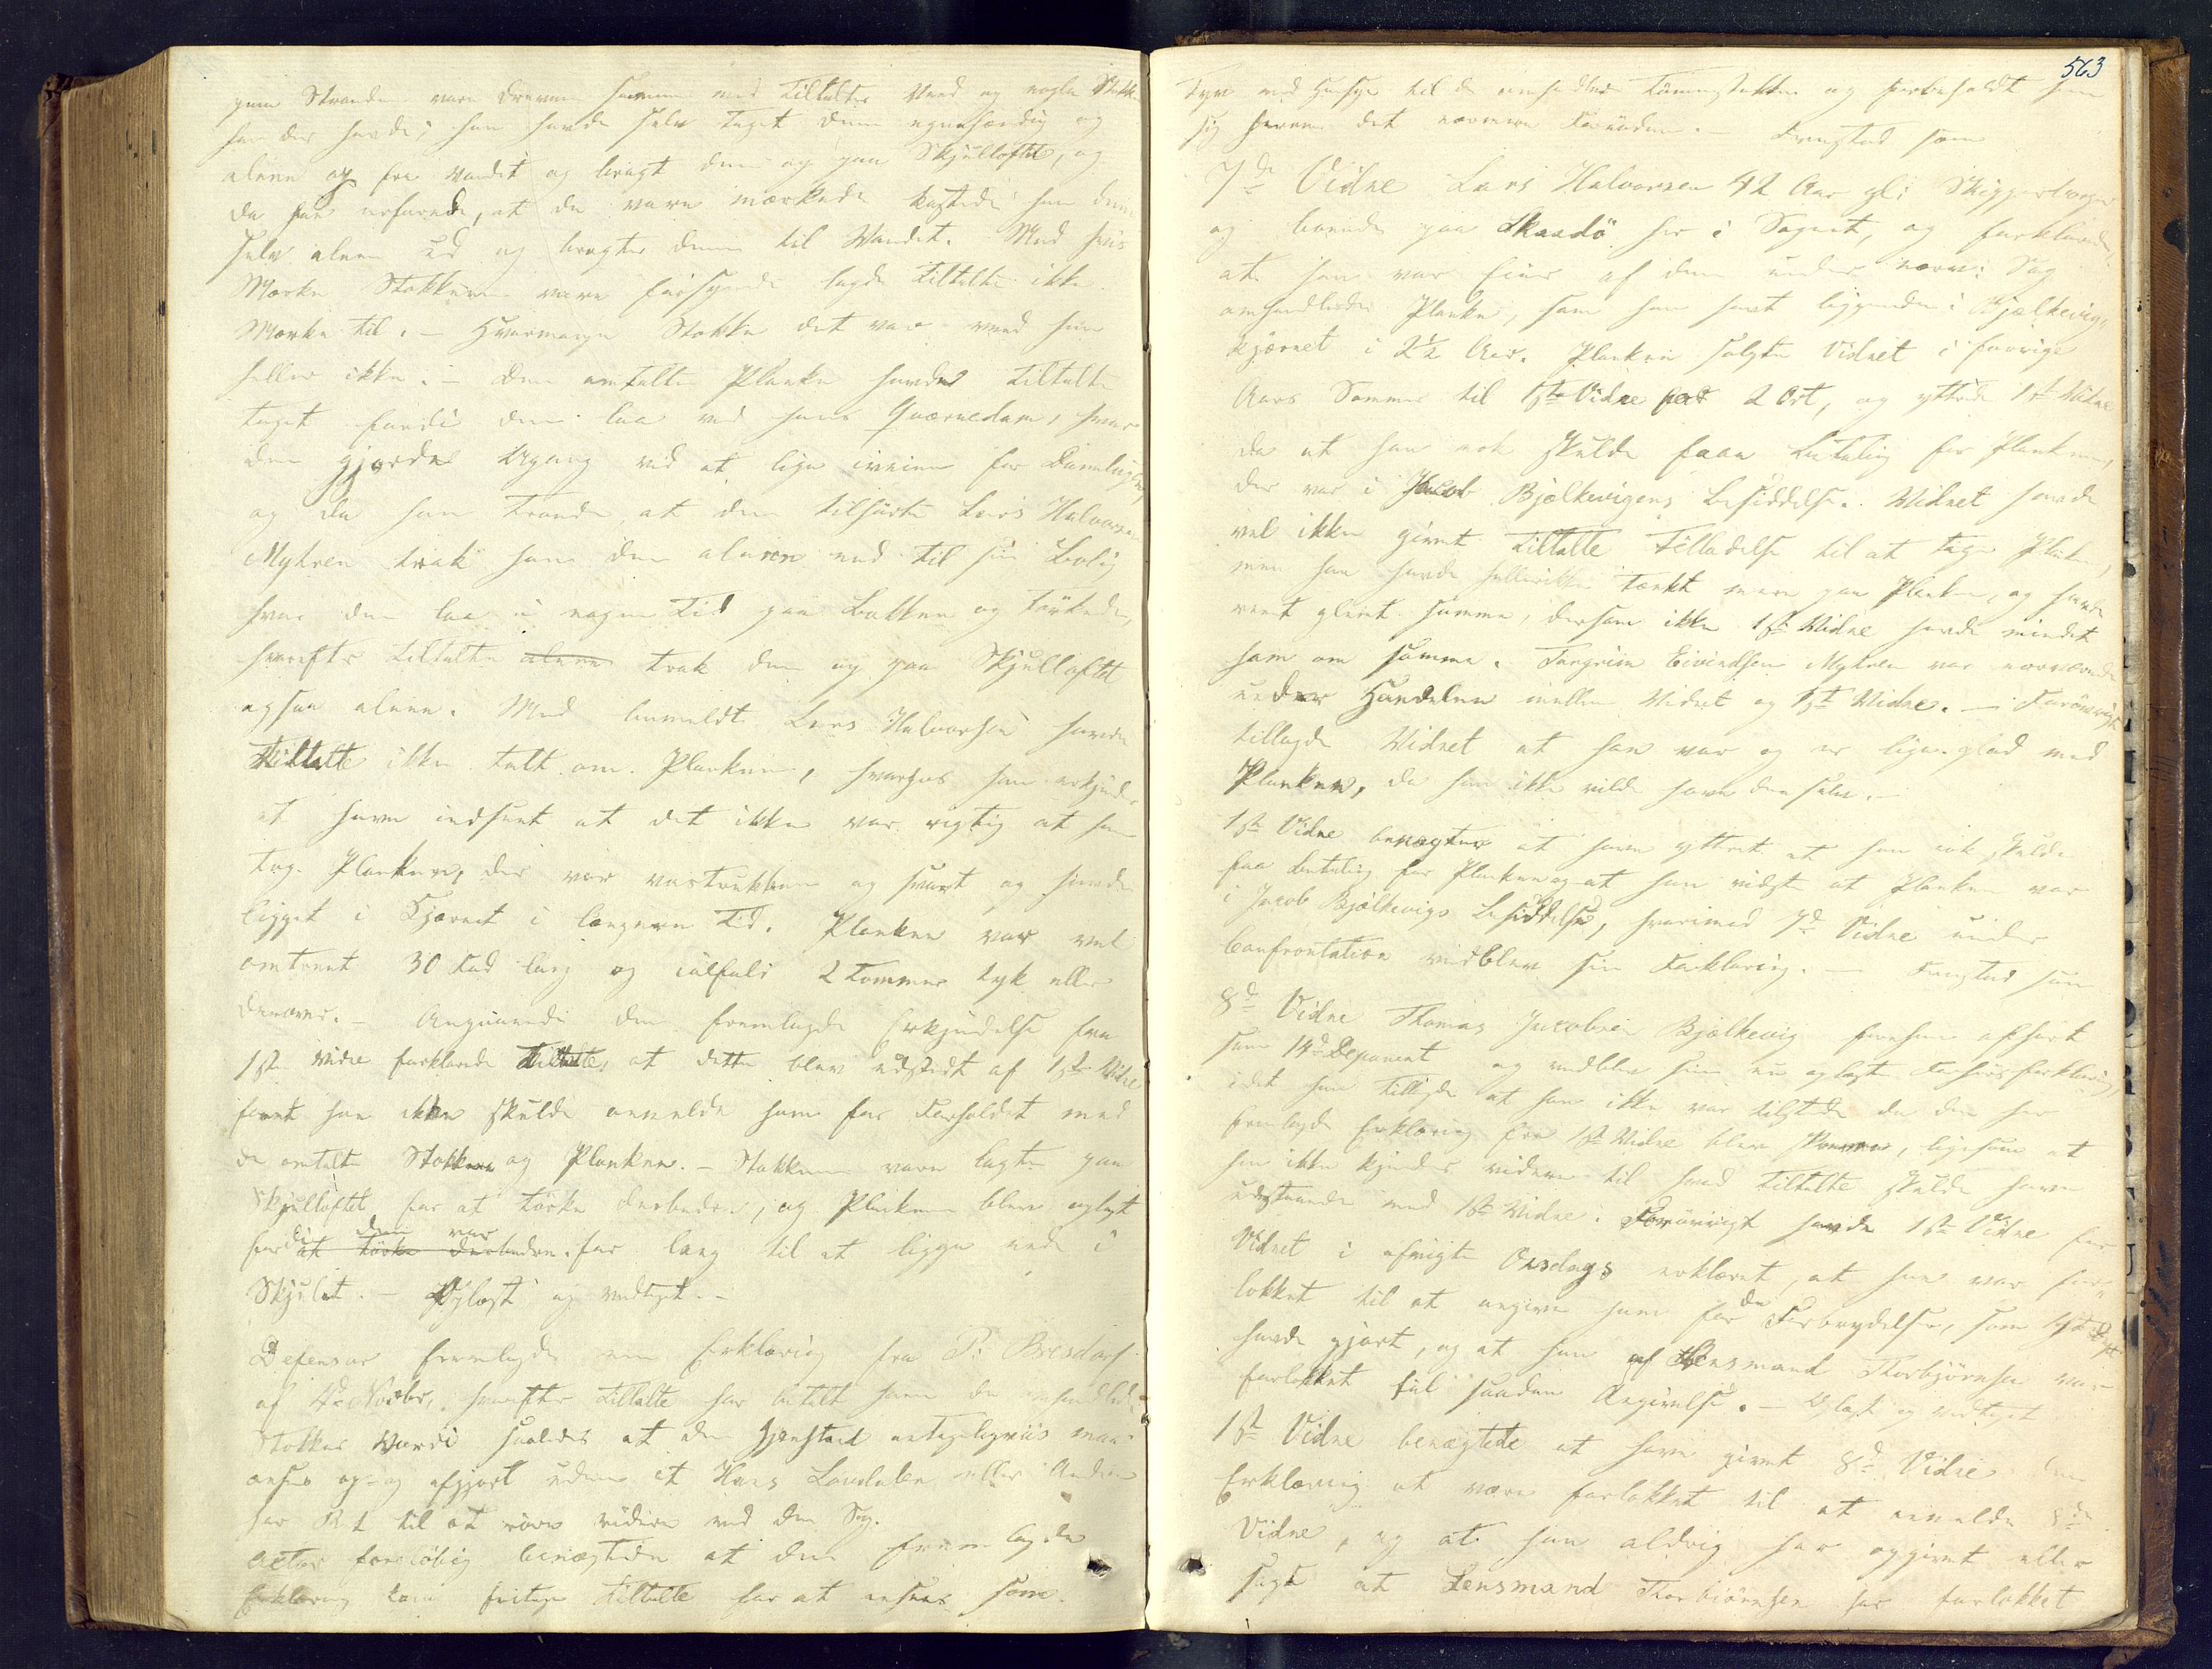 paa Stranden vare drevne sammen med Tiltaltes Ved og nogle Stokke
han der havde; han havde selv taget dem egenhændig og
alene op fra Vandet og bragt dem op paa Skjulloftet, og
da han erfarede, at de vare mærkede kastede han dem
selv alene ud og bragte dem til Vandet. Med hvis
Mærke Stokkene vare forsynede lagde Tiltalte ikke
Mærke til. – Hvormange Stokke det var veed han
heller ikke. – Den omtalte Planke havde Tiltalte
taget fordi den laa ved hans Qværnedam, hvor
den gjorde Ugang ved at ligge iveien for Damlugen,
og da han troede, at den tilhørte Lars Halvorsen
Mykren trak han den alene ned til sin Bolig
hvor den laa i nogen Tid paa Bakken og tørkede,
hvorefter Tiltalte alene trak den op paa Skjulloftet
ogsaa alene. Med bemeldte Lars Halvorsen havde
Tiltalte ikke talt om Planken, hvorhos han erkjender
at have indseet at det ikke var rigtig at han
tog Planken, der var vastrukken og svart og havde
ligget i Tjærnet i længere Tid. Planken var vel
omtrent 30 Fod lang og ialfald 2 Tommer tyk eller
derover. – Angaaende den fremlagde Erkjendelse fra
1ste Vidne forklarede Tiltalte, at dette blev udstedt af 1ste Vidne
forat han ikke skulde anmelde ham for Forholdet med
de omtalte Stokkene og Planken. – Stokkene vare lagte paa
Skjulloftet for at tørke derbedre, og Planken blev oplagt
fordi den var at tørke derbedre. for lang til at ligge nede i
Skjulet. – Oplæst og vedtaget. –
Defensor fremlagde en Erklæring fra P. Bresdorf
af 4de Novbr, hvorefter Tiltalte har betalt ham de omhandlede
Stokkes Værdi saaledes at den Gjenstand antageligviis maa
ansees op- og afgjort uden at Hans Lovdalen eller Andre
har Ret til at røre videre ved den Sag.
Actor foreløbig benægtede at den fremlagde
Erklæring kan fritage Tiltalte for at ansees som
563
Tyv med Hensyn til de omhandlede Tømmerstokke og forbeholdt han
sig herom det nærmere Fornødne. – Fremstod som
7de Vidne Lars Halvorsen 42 Aar gl:
og boende paa Skaadö her i Sognet, og forklarede,
at han var Eier af den under nærv: Sag
omhandlede Planke, som han havt liggende i Bjælkevig-
kjærnet i 2½ Aar. Planken solgte Vidnet i forrige
Aars Sommer til 1ste Vidne for 2 Ort, og yttrede 1ste Vidne
da at han nok skulde faae Betaling for Planken,
der var i Jacob Bjælkevigens Besiddelse. Vidnet havde
vel ikke givet Tiltalte Tilladelse til at tage Planken,
men han havde hellerikke tænkt mere paa Planken, og havde
reent glemt samme, dersom ikke 1ste Vidne havde mindet
ham om samme. Torgrim Eivindsen Mykren var nærværende
under Handelen mellem Vidnet og 1ste Vidne. – Forøvrigt
tillagde Vidnet at han var og er lige glad med
Planken, da han ikke vilde have den selv. –
1ste Vidne benægter at have yttret at han nok skulde
faa Betaling for Planken og at han vidste at Planken var
i Jacob Bjælkevigs Besiddelse, hvorimod 7de Vidne under
Confrontation vedblev sin Forklaring. – Fremstod som
8de Vidne Thomas Jacobsen Bjælkevig forhen afhørt
som 14de Deponent og vedblev sin nu oplæste Forhørsforklaring,
idet han tilføjede at han ikke var tilstede da den her
fremlagde Erklæring fra 1ste Vidne blev skreven, ligesom at
han ikke kjender videre til hvad Tiltalte skulde have
udestaaende med 1ste Vidne. Forøvrigt havde 1ste Vidne for
Vidnet i afvigte Onsdags erklæret, at han var for-
lokket til at angive ham for de Forbrydelser, som
havde gjort, og at han af Lensmand Thorbjörnsen var
forlokket til saadan Angivelse. – Oplæst og vedtaget
1ste Vidne benægtede at have givet 8de Vidne den
Erklæring at være forlokket til at anmelde 8de
Vidne, og at han aldrig har opgivet eller
sagt at Lensmand Thorbiörnsen har forlokket